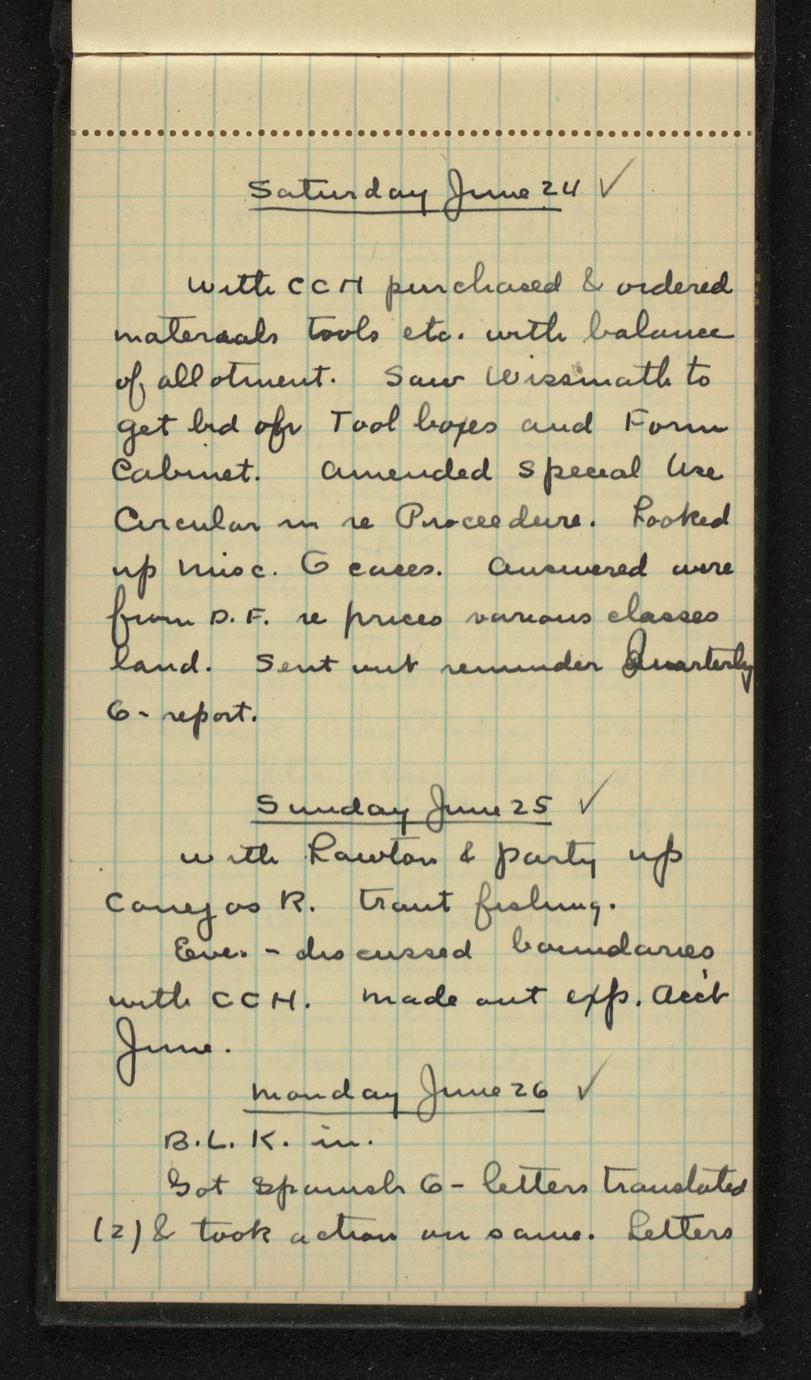 Saturday June 24 ✓
With CCH purchased & ordered
materials tools etc. with balance
of allotment. Saw Wissmath to
get bid ofr Tool boxes and Form
Cabinet. Amended Special Use
Circular in re Proceedure. Looked
up misc. G cases. Answered wire
from D.F. re prices various classes
land. Sent out reminder Quarterly
G- report.
Sunday June 25 ✓
With Lawton & party up
Conejos R. trout fishing.
Eve. - discussed boundaries
with CCH. Made out exp. Acc't
June.
Monday June 26 ✓
B.L.K. in.
Got Spanish G- letters translated
(2) & took action on same. Letters